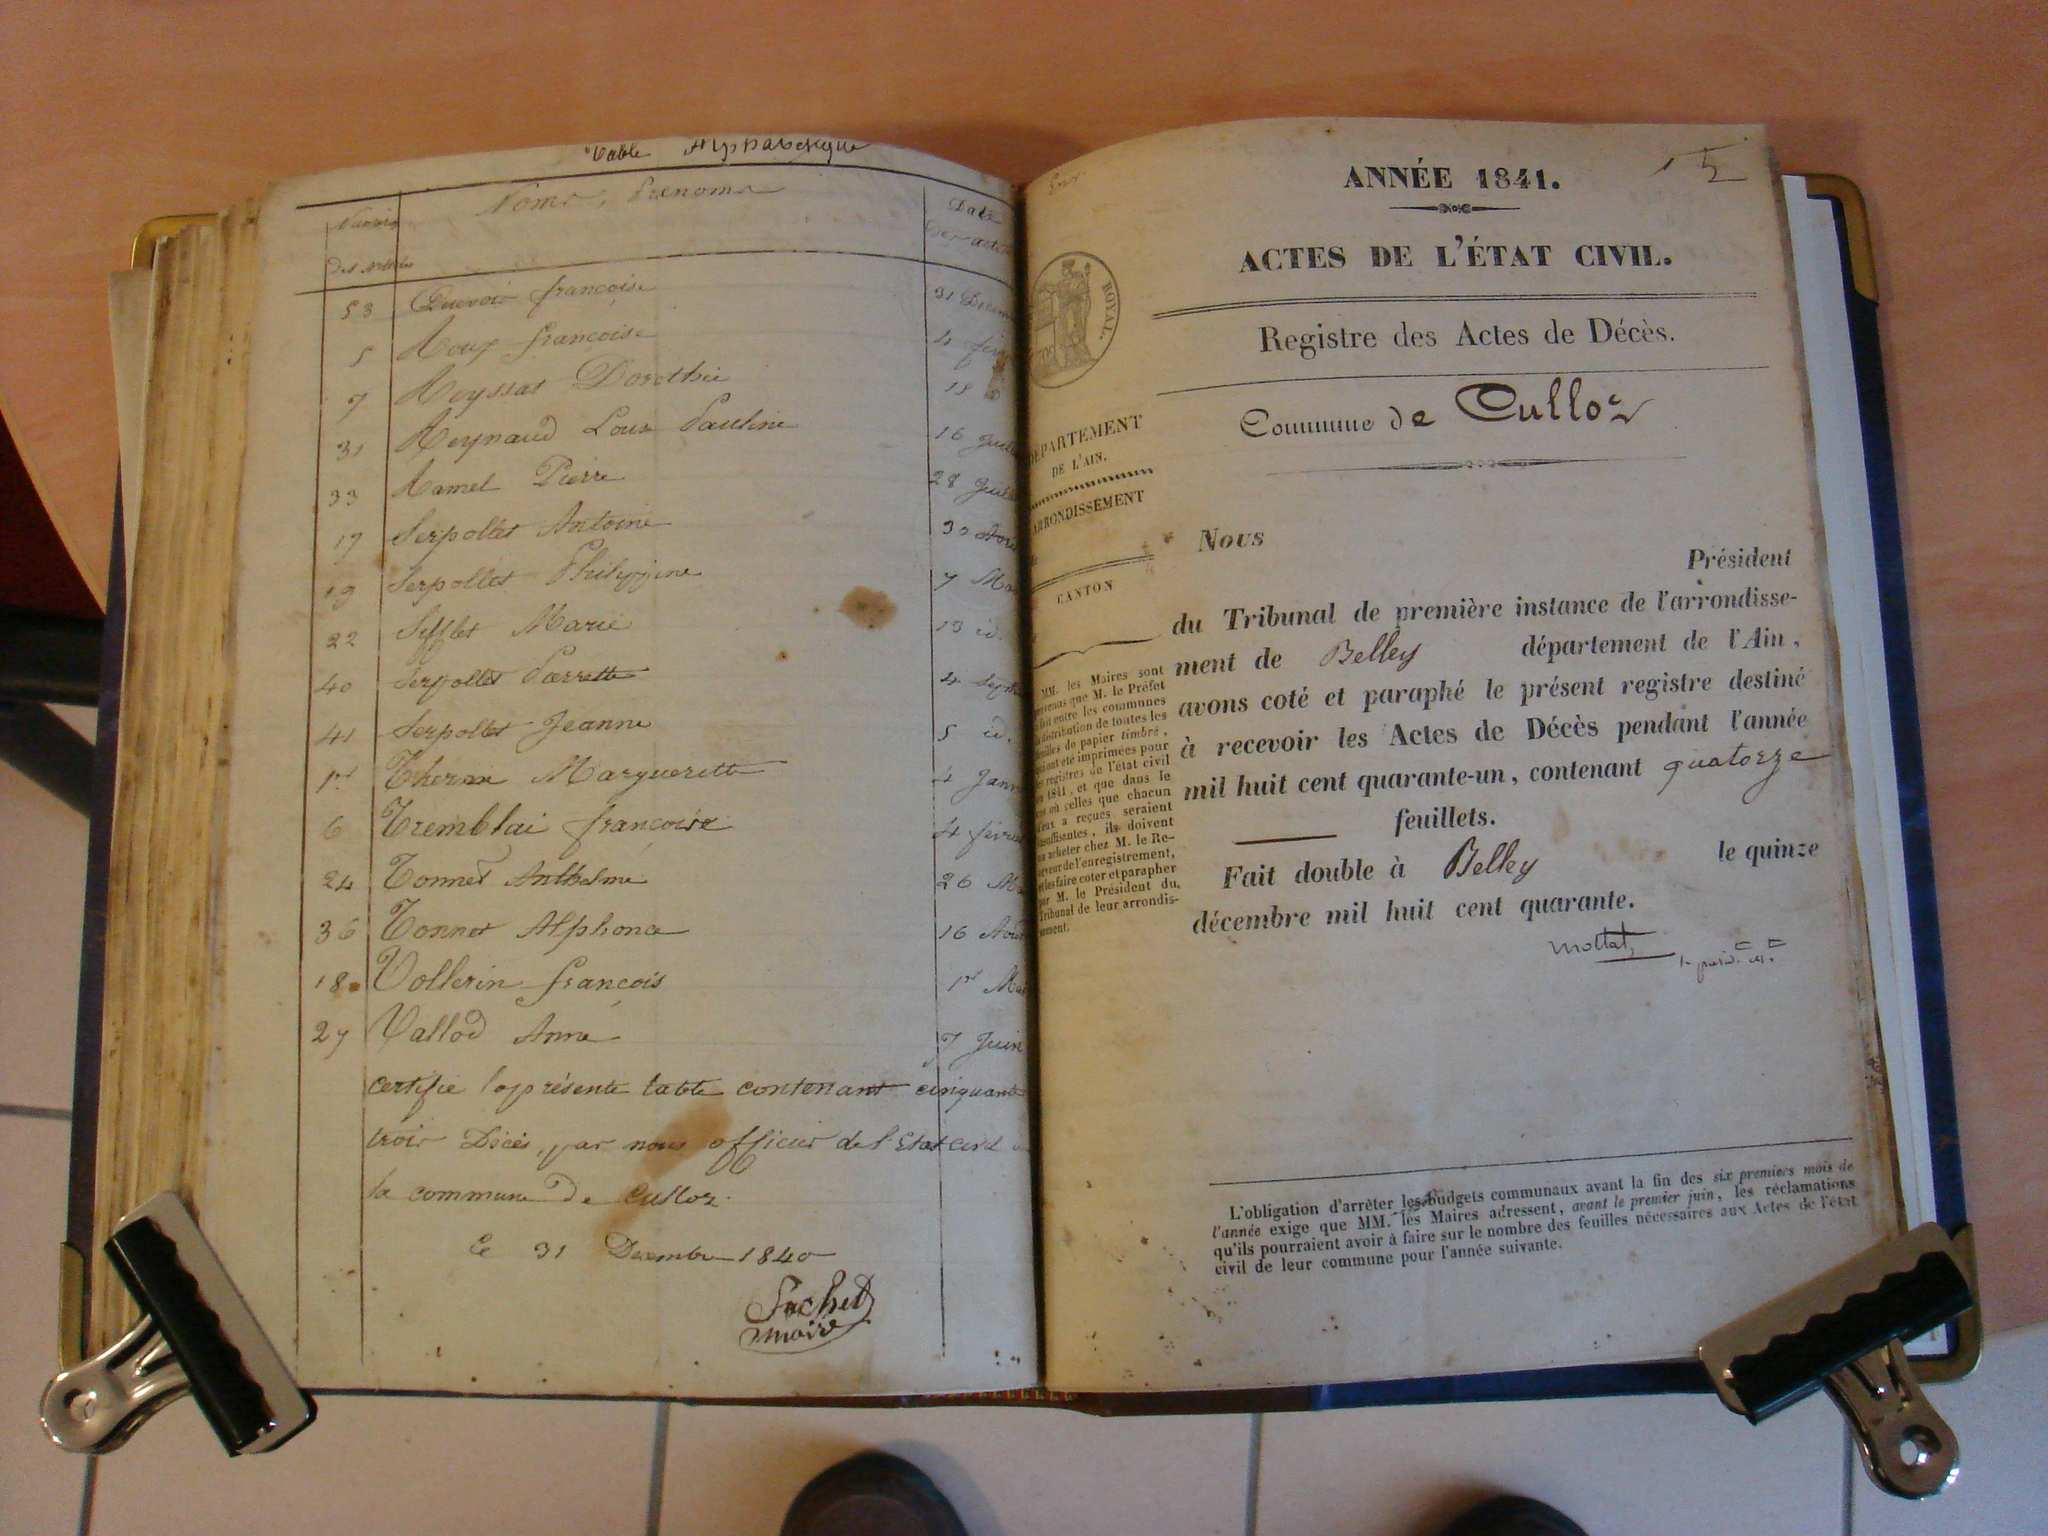 Table Alphabétique
Noms, Prenoms
Date
53 françoise 31
5 Roux françoise 4
7 Reyssat Dorothée 18
31 Reynaud Louise Pauline 16
33 Ramel Pierre 28
17 Serpollet Antoine 30
19 Serpollet Philippine 7
22 Sifflet Marie 13 id.
40 Serpollet Pierrette 4
41 Serpollet Jeanne 5 id.
1er Marguerette 4
6 Tremblai françoise 4
24 Tonnet Anthelme 26
36 Tonnet Alphonce 16
18 Vollerin françois 1er
27 Vallod Anne 7 Juin
certifie la présente table contenant cinquante
trois Décès, par nous officier de l'Etat civil
la commune de Culloz.
Le 31 Decembre 1840
Sachet
maire
15
ANNÉE 1841.
ACTES DE L'ÉTAT CIVIL.
Registre des Actes de Décès.
Commune de Culloz
ROYAL.
DÉPARTEMENT
DE L'AIN.
ARRONDISSEMENT
CANTON
MM. les Maires sont
que M. le Préfet
fait entre les communes
la distribution de toutes les
feuilles de papier timbré,
qui ont été imprimées pour
les registres de l'état civil
en 1841, et que dans le
cas où celles que chacun
d'eux a reçues seraient
insuffisantes, ils doivent
en acheter chez M. le Re-
ceveur de l'enregistrement,
et les faire coter et parapher
par M. le Président du
Tribunal de leur arrondis-
sement.
Nous
Président
du Tribunal de première instance de l'arrondisse-
ment de Belley département de l'Ain,
avons coté et paraphé le présent registre destiné
à recevoir les Actes de Décès pendant l'année
mil huit cent quarante-un, contenant quatorze
feuillets.
Fait double à Belley le quinze
décembre mil huit cent quarante.
Mottat
L'obligation d'arrêter les budgets communaux avant la fin des six premiers mois de
l'année exige que MM. les Maires adressent, avant le premier juin, les réclamations
qu'ils pourraient avoir à faire sur le nombre des feuilles nécessaires aux Actes de l'état
civil de leur commune pour l'année suivante.